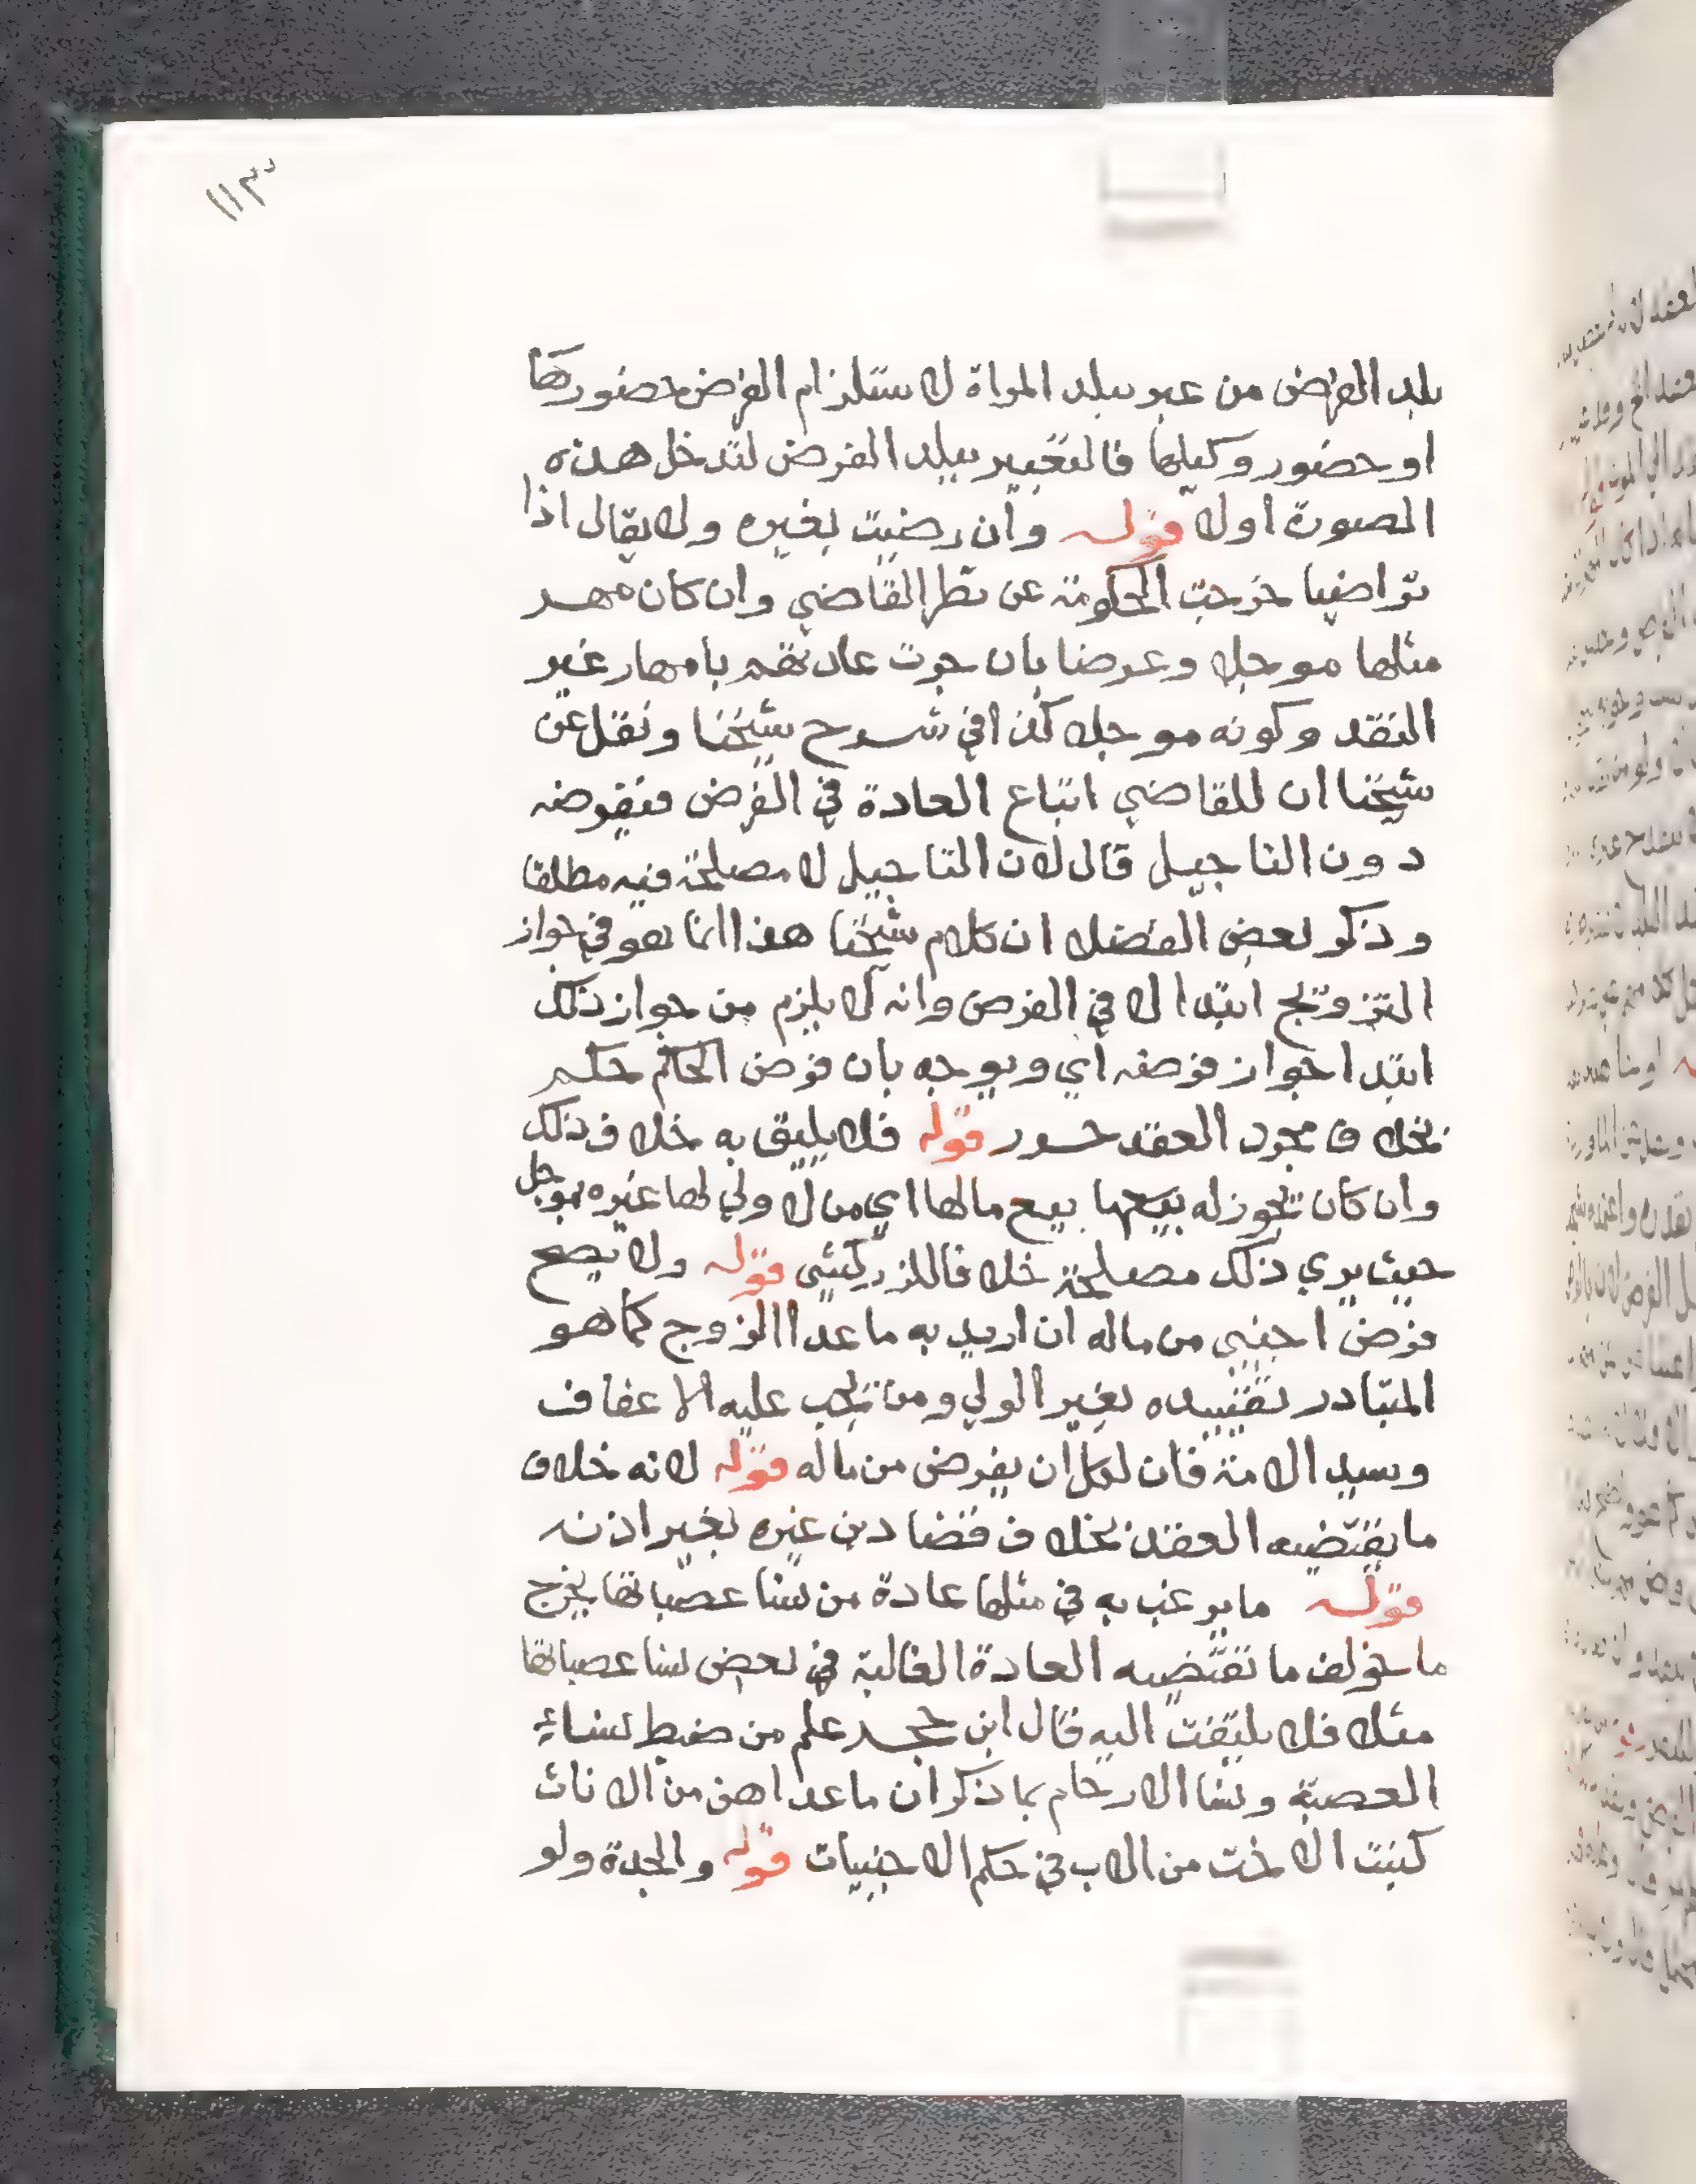 ١١٣
بلد الفرض من غير بلد المراة لاستلزام الفرض حضورها
او حضور وكيلها فالتعبير ببلد الفرض لتدخل هذه
الصورة اولا قوله وان رضيت بغيره ولا يقال اذا
تراضيا خرجت الحكومة عن نظر القاضي وان كان مهر
مثلها موجلا وعرضا بان جرت عادتهم بامهار غير
النقد وكونه موجلا كذا في شرح شيخنا ونقل عن
شيخنا ان للقاضي اتباع العادة في الفرض فنفرضه
دون التاجيل قال لان التاجيل لا مصلحة فيه مطلقا
وذكر بعض الفضلا ان كلام شيخنا هذا انما هو في جواز
التزويج ابتدا لا في الفرض وانه لا يلزم من جواز ذلك
ابتدا جواز فرضه اي ويوجه بان فرض الحاكم حكم
بخلاف مجرد العقد حرر قوله فلا يليق به خلاف ذلك
وان كان تجوز له بيعها بيع مالها اي من لا ولي لها غيره بموجل
حيث يري ذلك مصلحة خلافا للزركشي قوله ولا يصح
فرض اجنبي من ماله ان اريد به ما عدا الزوج كما هو
المتبادر تقييده بغير الولي ومن تجب عليه الاعفاف
وسيد الامة فان لكل ان يفرض من ماله قوله لانه خلاف
ما يقتضيه العقد بخلاف قضا دين غيره بغير اذنه
قوله ما يرغب به في مثلها عادة من نسا عصباتها يخرج
ما خولف ما تقتضيه العادة الغالبة في بعض نسا عصباتها
مثلا فلا يلتفت اليه قال ابن حجر علم من ضبط نساء
العصبة ونسا الارحام بما ذكر ان ما عداهن من الاناث
كبنت الاخت من الاب في حكم الاجنبيات قوله والجدة ولو